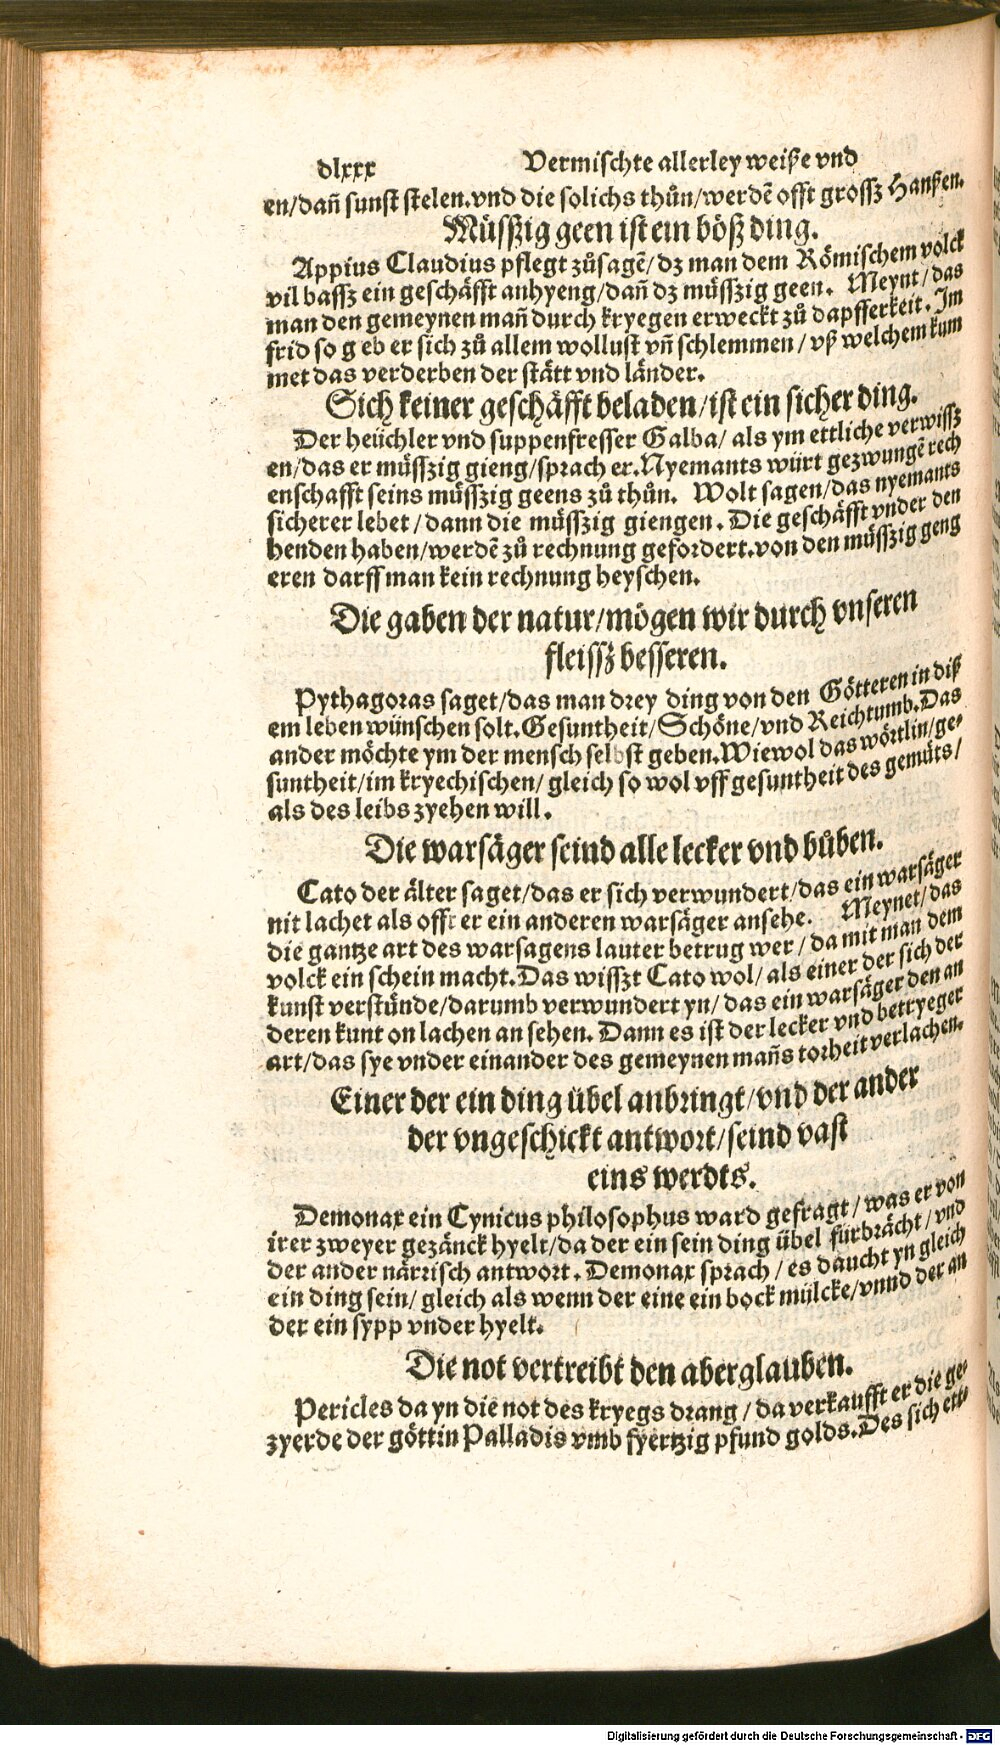 dlxxx Vermischte allerley weiße vnd
en/dañ sunst stelen.vnd die solichs thůn/werdẽ offt grossz Hanßen.
Müsßig geen ist ein böß ding.
Appius Claudius pflegt zůsagẽ/dz man dem Römischem volck
vil bassz ein geschäfft anhyeng/dañ dz müsszig geen. Meynt/das
man den gemeynen mañ durch kryegen erweckt zů dapfferkeit. Im
frid so geb er sich zů allem wollust vñ schlemmen/vß welchem kum
met das verderben der stätt vnd länder.
Sich keiner geschäfft beladen/ist ein sicher ding.
Der heüchler vnd suppenfresser Galba/als ym ettliche verwissz
en/das er müsszig gieng/sprach er.Nyemants würt gezwungẽ rech
enschafft seins müsszig geens zů thůn. Wolt sagen/das nyemants
sicherer lebet/dann die müsszig giengen. Die geschäfft vnder den
henden haben/werdẽ zů rechnung gefordert.von den müsszig geng
eren darff man kein rechnung heyschen.
Die gaben der natur/mögen wir durch vnseren
fleissz besseren.
Pythagoras saget/das man drey ding von den Götteren in diß
em leben wünschen solt.Gesuntheit/Schöne/vnd Reichtumb.Das
ander möchte ym der mensch selbst geben.Wiewol das wörtlin/ge⸗
suntheit/im kryechischen/gleich so wol vff gesuntheit des gemüts/
als des leibs zyehen will.
Die warsäger seind alle lecker vnd bůben.
Cato der älter saget/das er sich verwundert/das ein warsäger
nit lachet als offt er ein anderen warsäger ansehe. Meynet/das
die gantze art des warsagens lauter betrug wer/da mit man dem
volck ein schein macht.Das wisszt Cato wol/als einer der sich der
kunst verstünde/darumb verwundert yn/das ein warsäger den an
deren kunt on lachen an sehen. Dann es ist der lecker vnd betryeger
art/das sye vnder einander des gemeynen mañs torheit verlachen.
Einer der ein ding übel anbringt/vnd der ander
der vngeschickt antwort/seind vast
eins werdts.
Demonax ein Cynicus philosophus ward gefragt/was er von
irer zweyer gezänck hyelt/da der ein sein ding übel fürbrächt/vnd
der ander närrisch antwort. Demonax sprach/es daucht yn gleich
ein ding sein/gleich als wenn der eine ein bock mülcke/vnnd der an
der ein sypp vnder hyelt.
Die not vertreibt den aberglauben.
Pericles da yn die not des kryegs drang/da verkaufft er die ge⸗
zyerde der göttin Palladis vmb fyertzig pfund golds.Des sich ett⸗
Digitalisierung gefördert durch die Deutsche Forschungsgemeinschaft - DFG